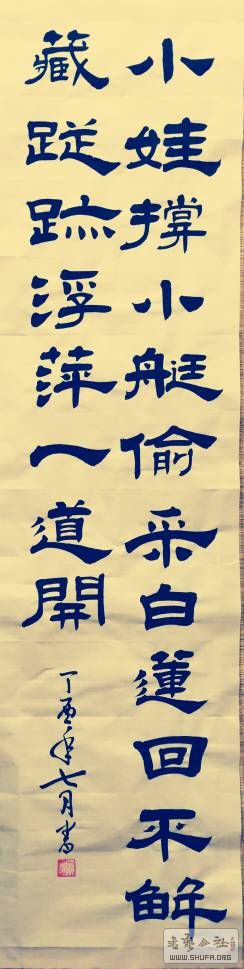 小娃撐小艇偷采白蓮回不解
藏蹤跡浮萍一道開
丁酉年七月書
书艺公社
WWW.SHUFA.ORG